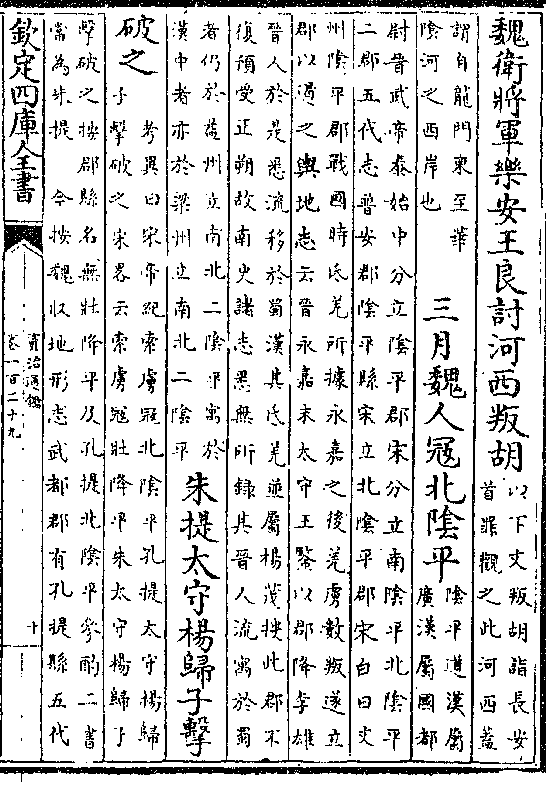 魏衛將軍樂安王良討河西叛胡
以下文叛胡詣長安
首罪觀之此河西蓋
謂自龍門東至華
陰河之西岸也
三月魏人宼北陰平
陰平道漢屬
廣漢屬國都
尉晉武帝泰始中分立陰平郡宋分立南陰平北陰平
二郡五代志普安郡陰平縣宋立北陰平郡宋白曰文
州陰平郡戰國時氐羌所據永嘉之後羌虜數叛遂立
郡以過之輿地志云晉永嘉末太守王鑒以郡降李雄
晉人於是悉流移於蜀漢其氐羌並屬楊茂搜此郡不
復預受正朔故南史諸志悉無所錄其晉人流寓於蜀
者仍於益州立南北二陰平寓於
漢中者亦於梁州立南北二陰平
朱提太守楊歸子擊
破之
考異曰宋帝紀索虜宼北陰平孔提太守楊歸
子擊破之宋畧云索虜宼壯降平朱太守楊歸子
擊破之按郡縣名無壯降平及孔提北陰平參酌二書
當為朱提 今按魏收地形志武都郡有孔提縣五代
欽定四庫全書
資治通鑑
卷一百二十九
十